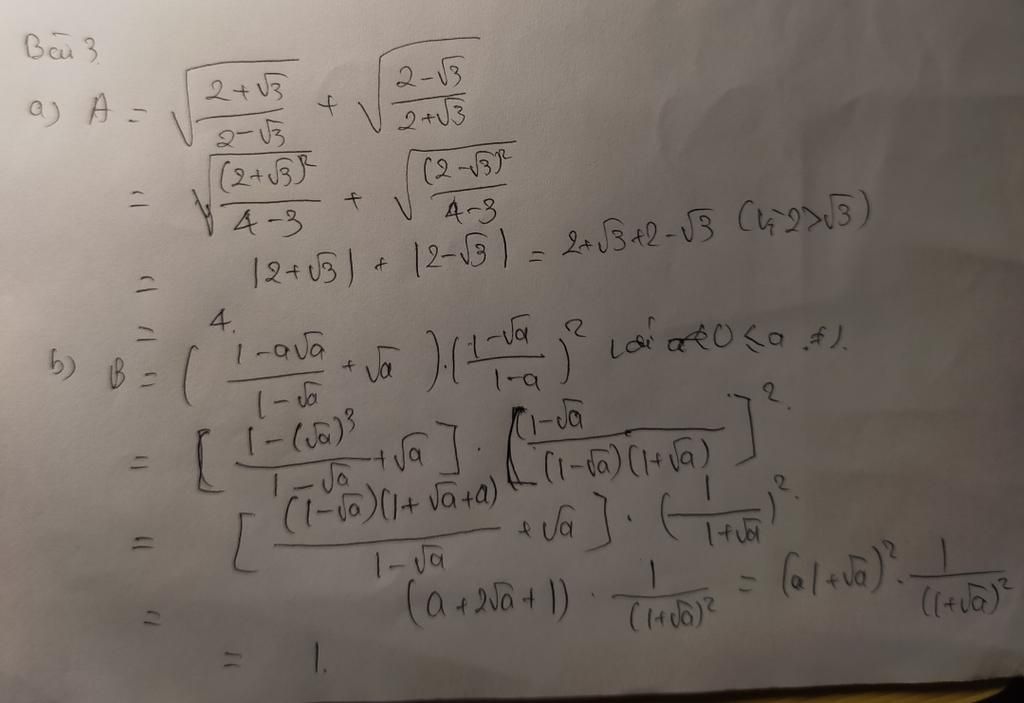 Bài 3
a) A = √((2+√3)/(2-√3)) + √((2-√3)/(2+√3))
= √((2+√3)²/(4-3)) + √((2-√3)²/(4-3))
= |2+√3| + |2-√3| = 2+√3+2-√3 (vì 2>√3)
= 4.
b) B = ((1-a√a)/(1-√a) + √a).((1-√a)/(1-a))² với 0 ≤ a ≠ 1.
= [(1-(√a)³)/(1-√a) + √a] . [(1-√a)/((1-√a)(1+√a))]².
= [((1-√a)(1+√a+a))/(1-√a) + √a] . (1/(1+√a))².
= (a+2√a+1) . 1/(1+√a)² = (1+√a)² . 1/(1+√a)²
= 1.